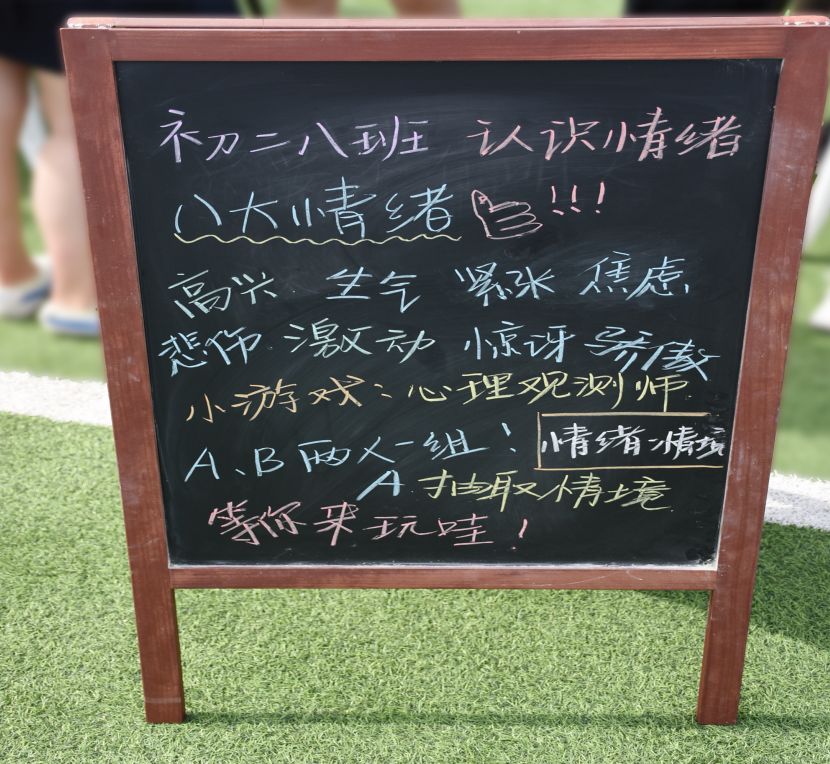 初二八班 认识情绪
八大情绪!!!
高兴 生气 紧张 焦虑
悲伤 激动 惊讶 骄傲
小游戏：心理观测师
A、B两人一组！
情绪情境
A 抽取情境
等你来玩哇！